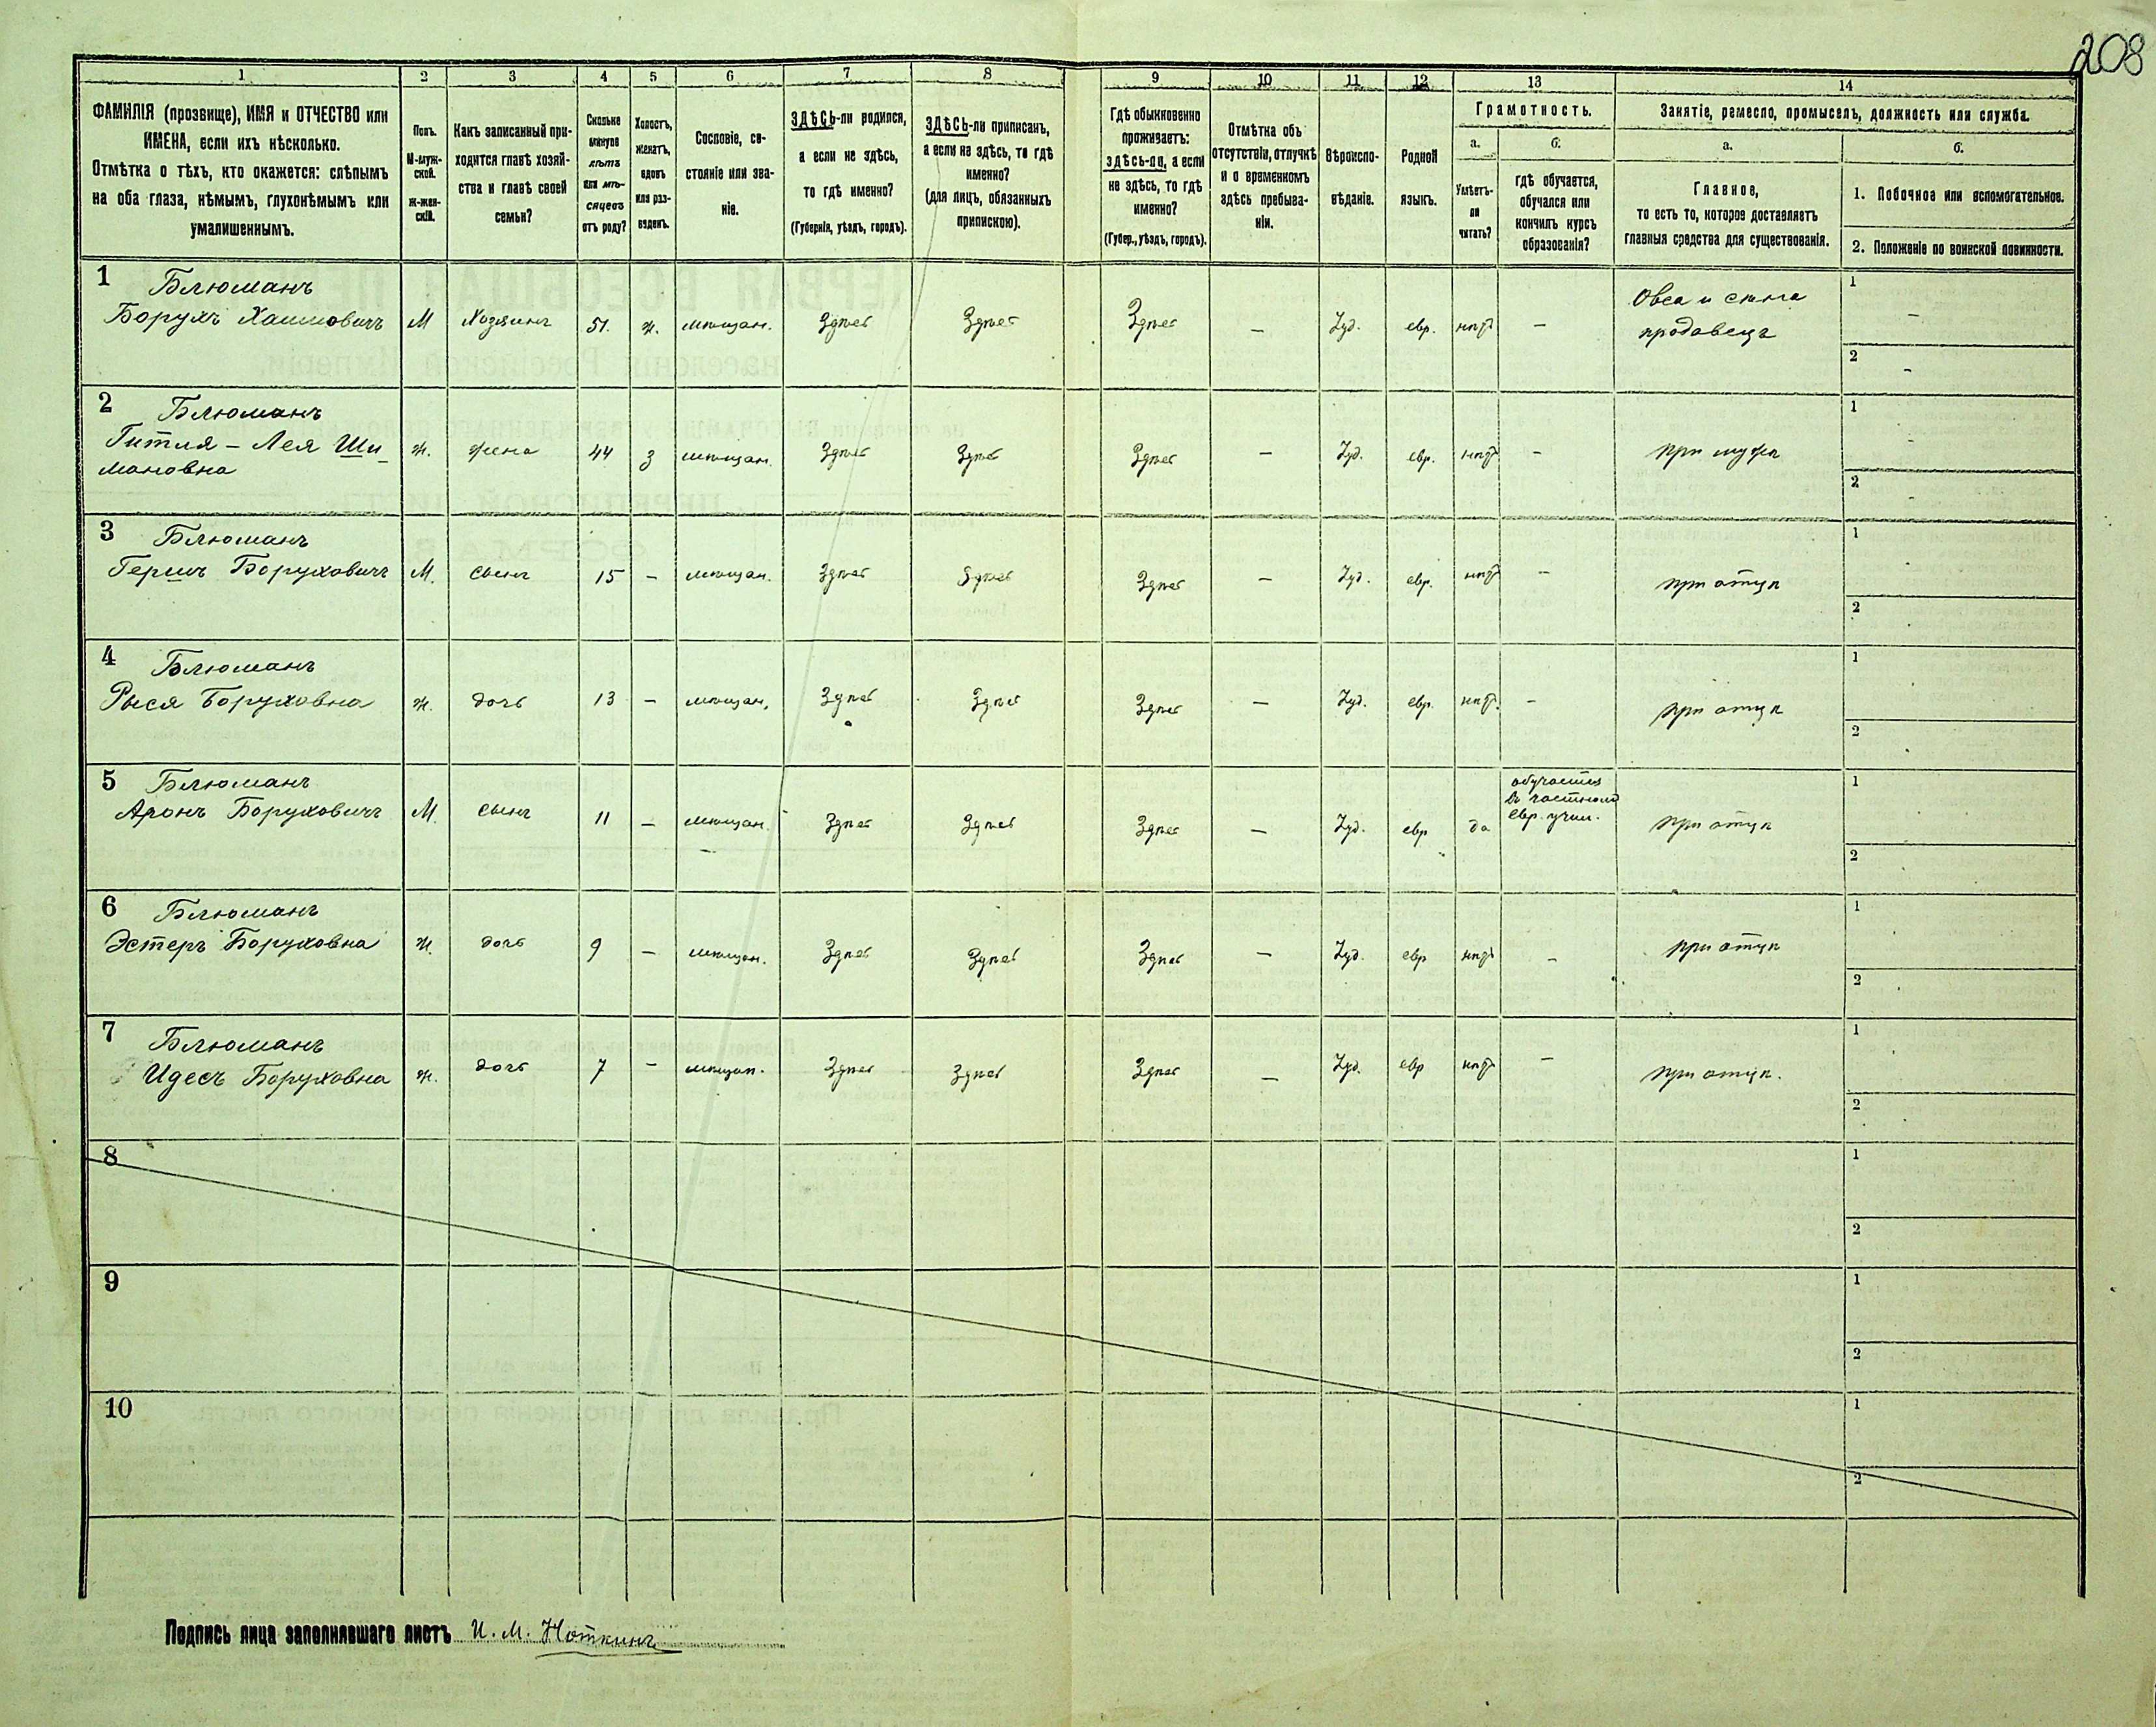 208
1 2 3 4 5 6 7 8 9 10 11 12 13 14
ФАМИЛІЯ (прозвище), ИМЯ и ОТЧЕСТВО или
ИМЕНА, если ихъ нѣсколько.
Отмѣтка о тѣхъ, кто окажется: слѣпымъ
на оба глаза, нѣмымъ, глухонѣмымъ или
умалишеннымъ.
Полъ.
М-муж-
ской.
Ж-жен-
скій.
Какъ записанный при-
ходится главѣ хозяй-
ства и главѣ своей
семьи?
Сколько
минуло
лѣтъ
или мѣ-
сяцевъ
отъ роду?
Холостъ,
женатъ,
вдовъ
или раз-
веденъ.
Сословіе, со-
стояніе или зва-
ніе.
ЗДѢСЬ-ли родился,
а если не здѣсь,
то гдѣ именно?
(Губернія, уѣздъ, городъ).
ЗДѢСЬ-ли приписан,
а если не здѣсь, то гдѣ
именно?
(для лицъ, обязанныхъ
припискою).
Гдѣ обыкновенно
проживаетъ:
здѣсь-ли, а если
не здѣсь, то гдѣ
именно?
(Губер., уѣздъ, городъ).
Отмѣтка объ
отсутствіи, отлучкѣ
и о временномъ
здѣсь пребыва-
ніи.
Вѣроиспо-
вѣданіе.
Родной
языкъ.
Грамотность.
а.
Умѣетъ-
ли
читать?
б.
гдѣ обучается,
обучался или
кончилъ курсъ
образованія?
Занятіе, ремесло, промыселъ, должность или служба.
а.
Главное,
то есть то, которое доставляетъ
главныя средства для существованія.
б.
1. Побочное или вспомогательное.
2. Положеніе по воинской повинности.
1 Блюманъ
Борухъ Хаимовичъ М Хозяинъ 51. ж. мѣщан. Здѣсь Здѣсь Здѣсь — Іуд. евр. нѣтъ —
Овса и сѣна
продавецъ
1 –
2 –
2 Блюманъ
Гитля – Лея Ши-
мановна ж. жена 44 З мѣщан. Здѣсь Здѣсь Здѣсь — Іуд. евр. нѣтъ – при мужѣ
1 –
2 –
3 Блюманъ
Гершъ Боруховичъ М. сынъ 15 – мѣщан. Здѣсь Здѣсь Здѣсь — Іуд. евр. нѣтъ – при отцѣ
1
2
4 Блюманъ
Рыся Боруховна ж. дочь 13 – мѣщан. Здѣсь Здѣсь Здѣсь — Іуд. евр. нѣтъ – при отцѣ
1
2
5 Блюманъ
Аронъ Боруховичъ М. сынъ 11 – мѣщан. Здѣсь Здѣсь Здѣсь — Іуд. евр да
обучается
въ частномъ
евр. учил.
при отцѣ
1
2
6 Блюманъ
Эстеръ Боруховна ж. дочь 9 – мѣщан. Здѣсь Здѣсь Здѣсь — Іуд. евр нѣтъ – при отцѣ
1
2
7 Блюманъ
Идесъ Боруховна ж. дочь 7 – мѣщан. Здѣсь Здѣсь Здѣсь — Іуд. евр нѣтъ – при отцѣ.
1
2
8
1
2
9
1
2
10
1
2
Подпись лица заполнявшаго листъ И. М. Ноткинъ